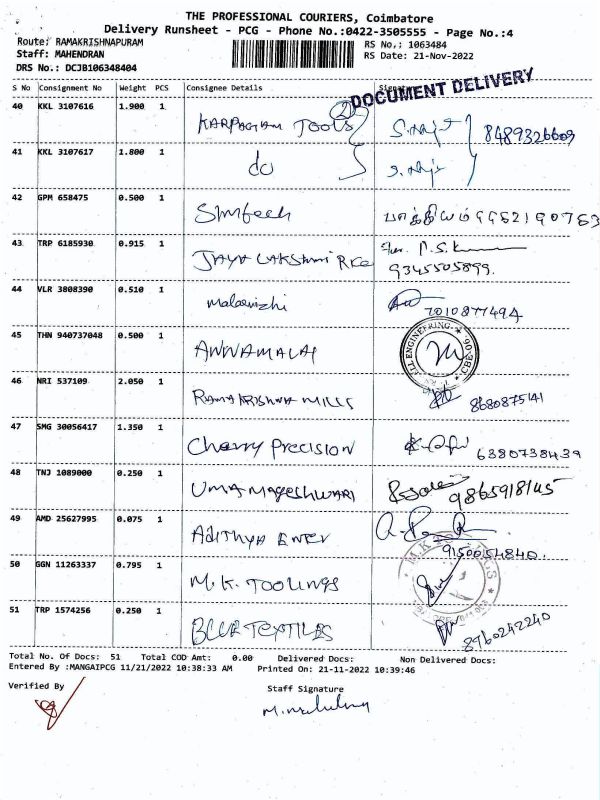 THE PROFESSIONAL COURIERS, Coimbatore
Delivery Runsheet - PCG - Phone No.:0422-3505555 - Page No.:4
Route: RAMAKRISHNAPURAM
RS No.: 1063484
Staff: MAHENDRAN
RS Date: 21-Nov-2022
DRS No.: DCJB106348404
DOCUMENT DELIVERY
S No Consignment No Weight PCS Consignee Details
40 KKL 3107616 1.900 1 KARPAGAM TOOLS (2) 8489326609
41 KKL 3107617 1.800 1 do
42 GPM 658475 0.500 1
43 TRP 6185930 0.915 1 JAYA LAKSHMI 9345505899.
44 VLR 3808390 0.510 1 malarvizhi 7010877494
45 THN 940737048 0.500 1 ANNAMALAI
46 NRI 537109 2.050 1 RAMAKRISHNA MILLS 8680875141
47 SMG 30056417 1.350 1 Cherry Precision 6380738439
48 TNJ 1089000 0.250 1 UMA MAGESHWARI 9865918145
49 AMD 25627995 0.075 1 ADITHYA ENTER 9150054840.
50 GGN 11263337 0.795 1 M.K. TOOLINGS
51 TRP 1574256 0.250 1 TEXTILES 8760242240
Total No. Of Docs: 51 Total COD Amt: 0.00 Delivered Docs: Non Delivered Docs:
Entered By :MANGAIPCG 11/21/2022 10:38:33 AM Printed On: 21-11-2022 10:39:46
Verified By
Staff Signature